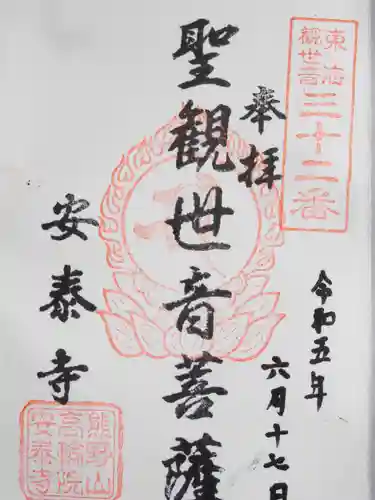 東海
観世音
三十二番
奉拝
令和五年
六月十七日
聖観世音菩薩
安泰寺
熊野山
安泰寺